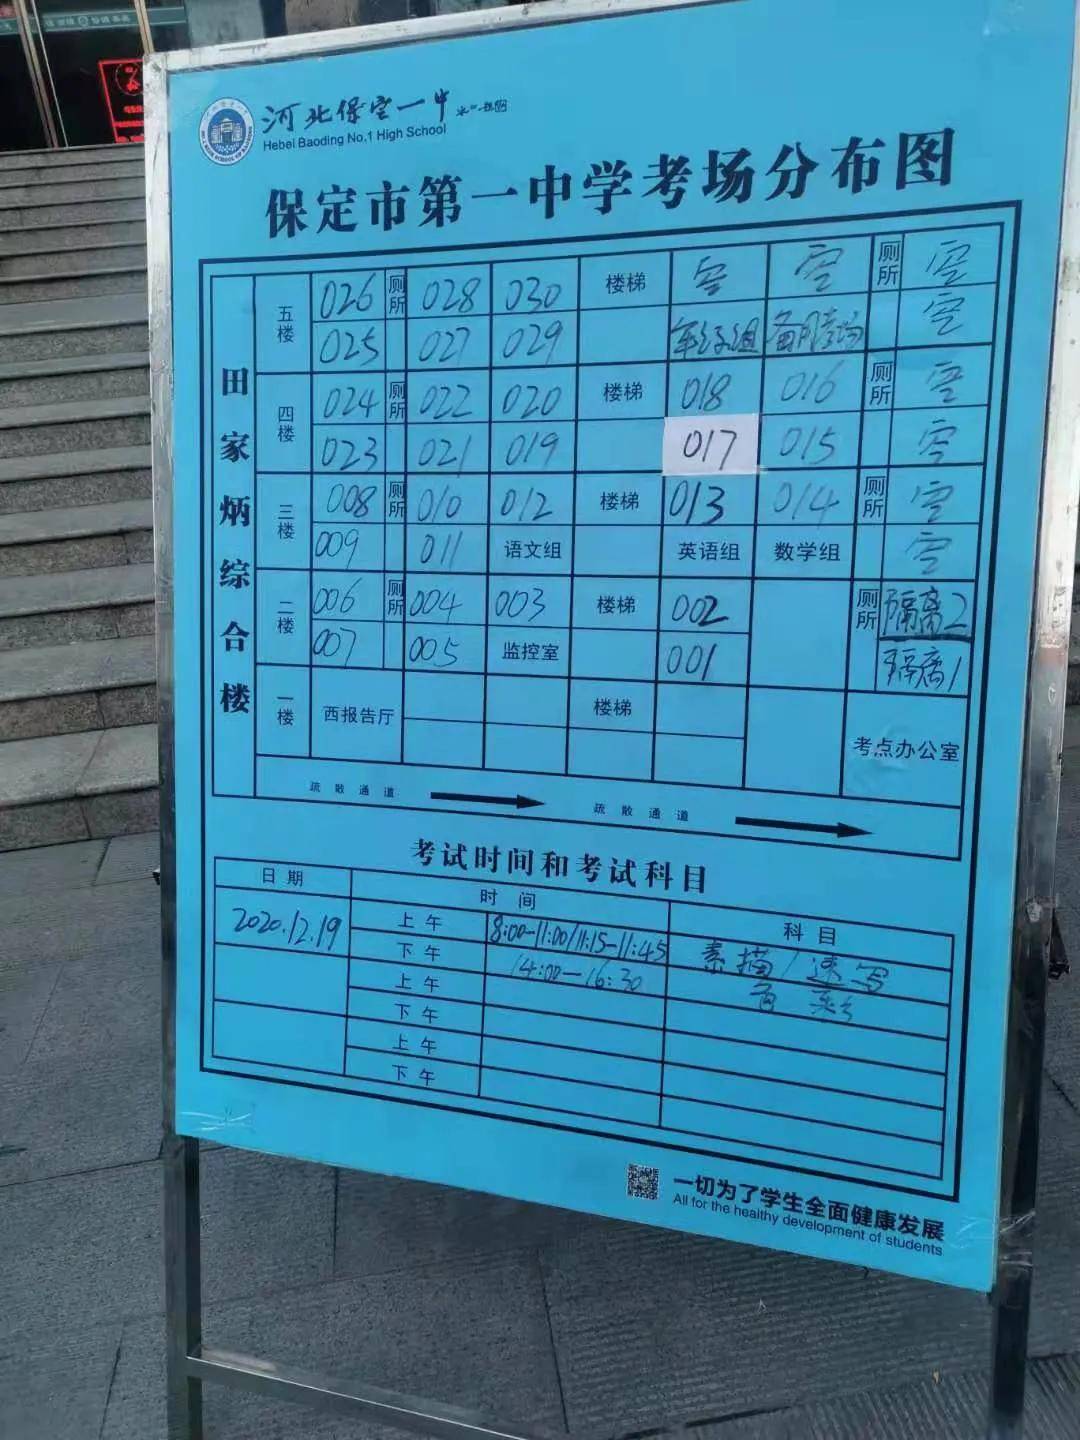 河北保定一中
Hebei Baoding No.1 High School
保定市第一中学考场分布图
田家炳综合楼
五楼 026 厕所 028 030 楼梯 空 空 厕所 空
025 027 029 年级组 备用考场 空
四楼 024 厕所 022 020 楼梯 018 016 厕所 空
023 021 019 017 015 空
三楼 008 厕所 010 012 楼梯 013 014 厕所 空
009 011 语文组 英语组 数学组 空
二楼 006 厕所 004 003 楼梯 002 厕所 隔离2
007 005 监控室 001 隔离1
一楼 西报告厅 楼梯 考点办公室
疏散通道 疏散通道
考试时间和考试科目
日期 时间 科目
2020.12.19 上午 8:00-11:00/11:15-11:45 素描/速写
下午 14:00-16:30 色彩
上午
下午
上午
下午
一切为了学生全面健康发展
All for the healthy development of students